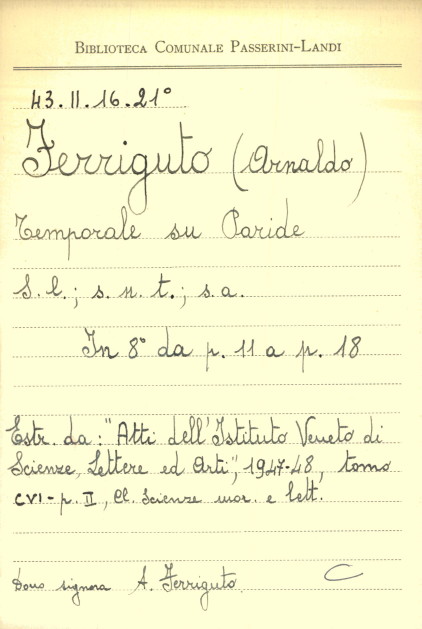 BIBLIOTECA COMUNALE PASSERINI-LANDI
43.II.16.21°
Ferriguto (Arnaldo)
Temporale su Paride
S.l.; s.n.t.; s.a.
In 8° da p. 11 a p. 18
Estr. da: "Atti dell'Istituto Veneto di
Scienze, Lettere ed Arti", 1947-48, tomo
CVI - p. II, Cl. Scienze mor. e lett.
Dono signora A. Ferriguto C